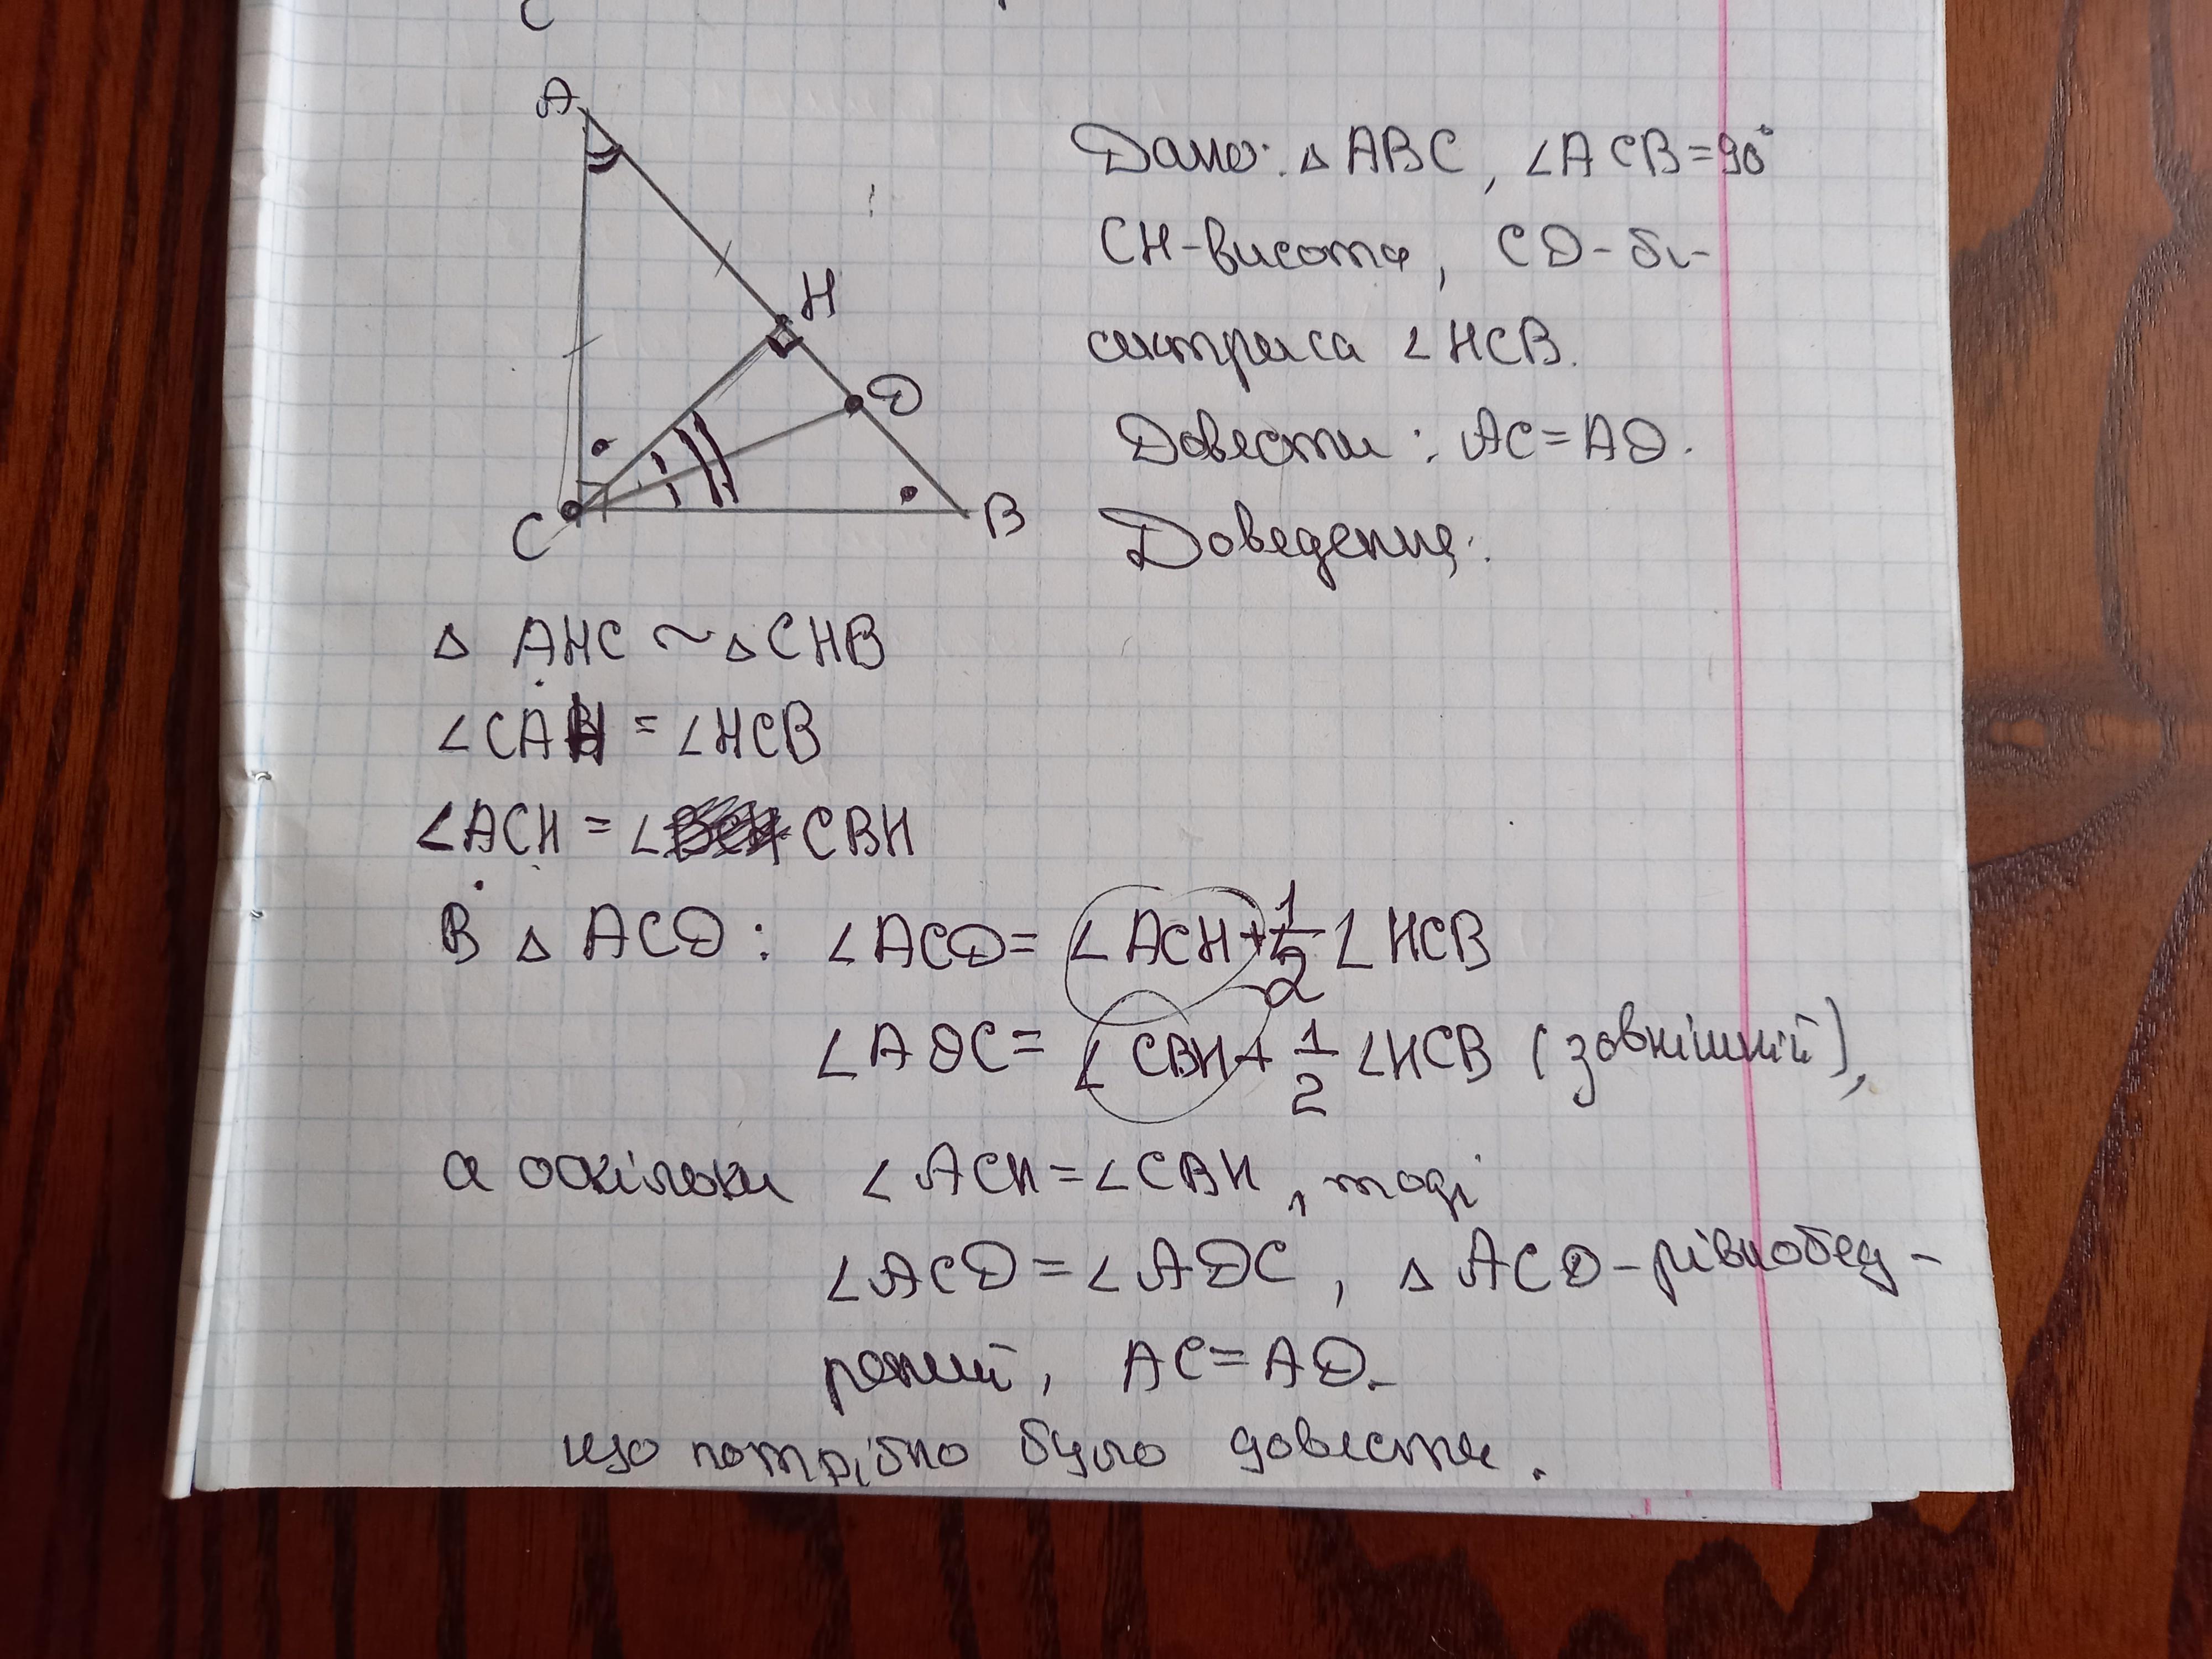 C
A
H
D
C
B
Дано: △ ABC, ∠ACB=90°
CH-висота, CD-бі-
сектриса ∠HCB.
Довести: AC=AD.
Доведення:
△ AHC ~ △CHB
∠CAH = ∠HCB
∠ACH = ∠CBH
В △ ACD: ∠ACD= ∠ACH+1/2 ∠HCB
∠ADC= ∠CBH+ 1/2 ∠HCB (зовнішній),
а оскільки ∠ACH=∠CBH, тоді
∠ACD=∠ADC, △ ACD-рівнобед-
рений, AC=AD.
що потрібно було довести.